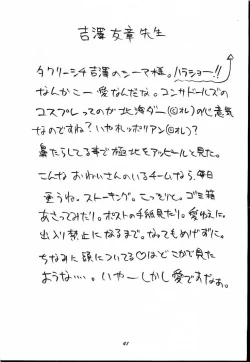 吉澤友章先生
タクリーシチ吉澤のシーマ様。ハラショー!!
なんかこー愛なんだな。コンサドールズの
コスプレってのが北海ダー(@オレ)の心意気
なのですね?いやれッポリアン(@オレ)?
鼻たらしてる事で極北をアッピールと見た。
こんなおねいさんのいるチームなら、毎日
通うね。ストーキング。こっそりと。ゴミ箱
あさってみたり。ポストの手紙見たり。愛ゆえに。
出入り禁止になるまで。なってもめげずに。
ちなみに頭についてる♡はどこかで見た
ような…。いやーしかし愛ですなぁ。
41